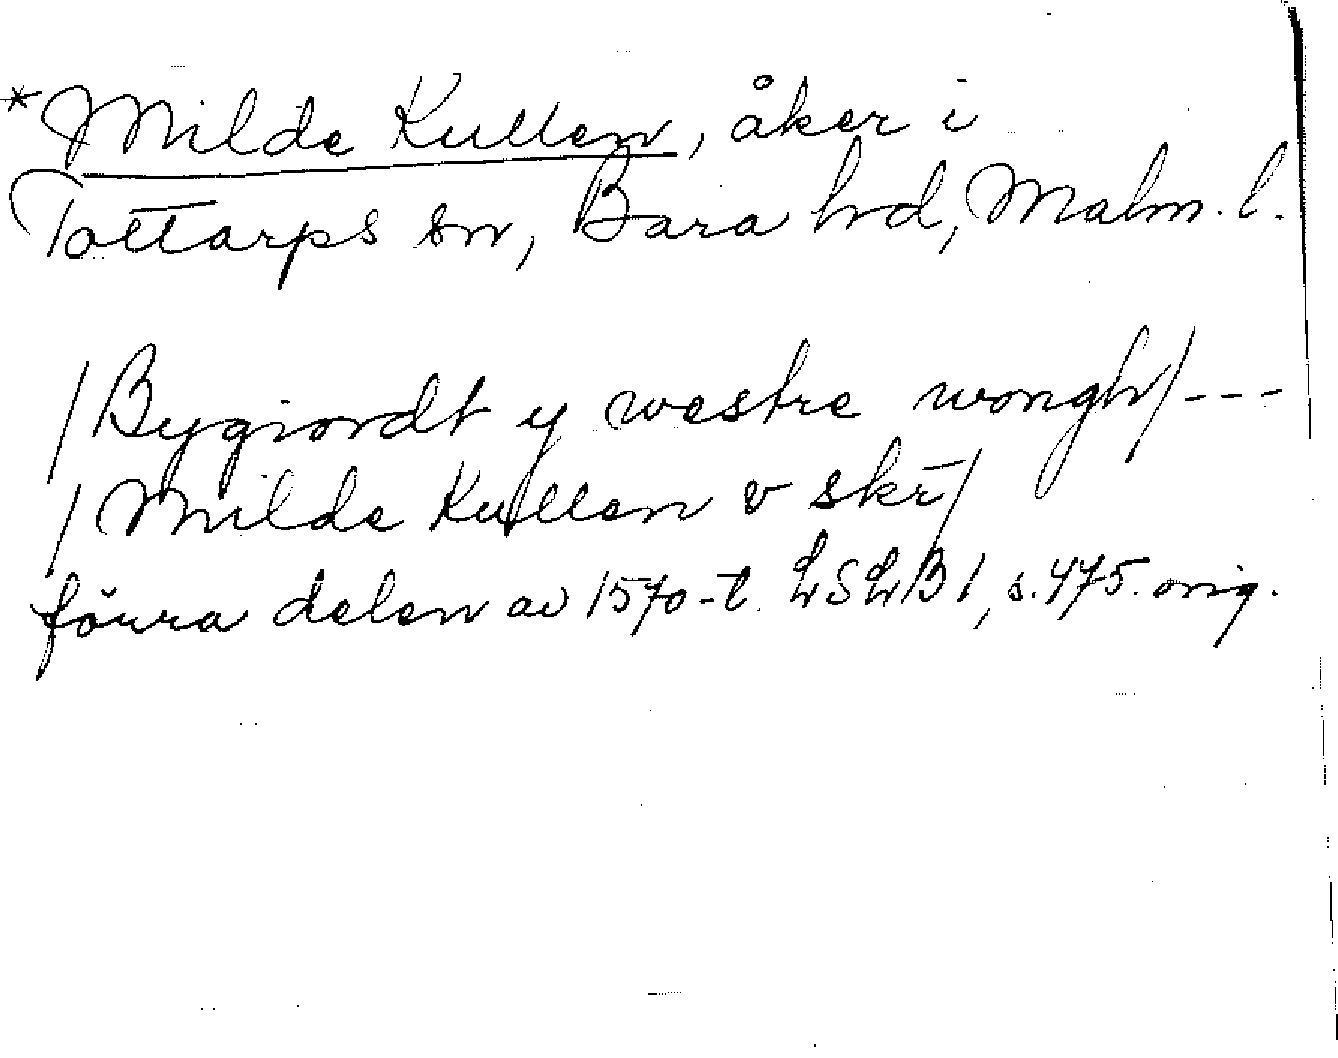 *Milde Kullen, åker i
Tottarps sn, Bara hd, Malm. l.
/Bygiordt y westre wongh/---
/Milde Kullen v skē/
förra delen av 1570-t. LSLB 1, s. 475. orig.